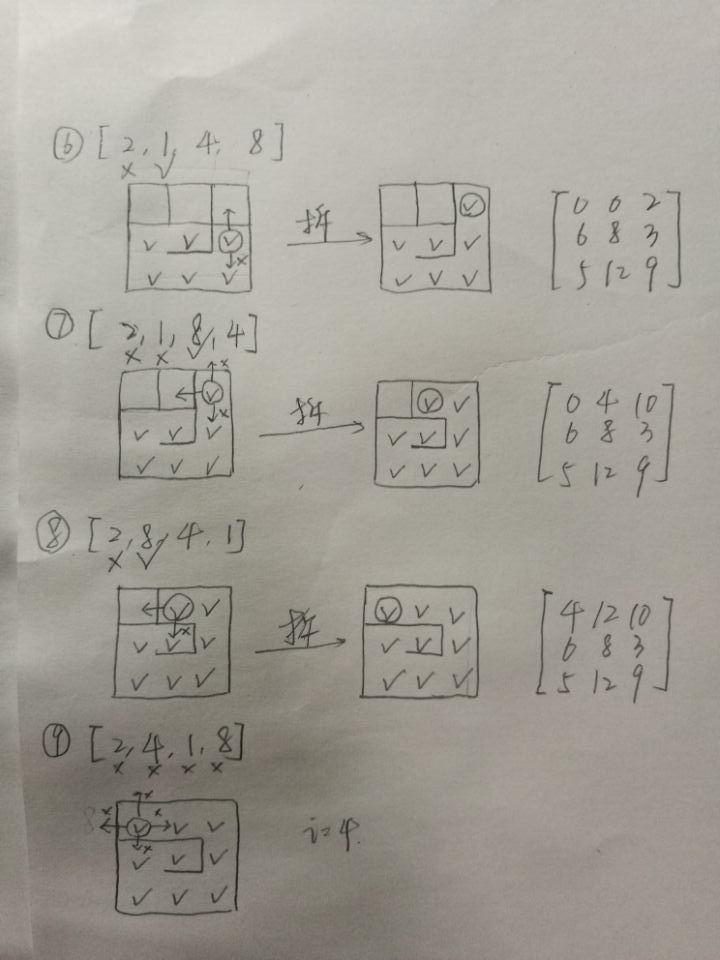 ⑥ [2, 1, 4, 8]
× ✓
拆
[0 0 2
6 8 3
5 12 9]
⑦ [2, 1, 8, 4]
× × ✓
拆
[0 4 10
6 8 3
5 12 9]
⑧ [2, 8, 4, 1]
× ✓
拆
[4 12 10
6 8 3
5 12 9]
⑨ [2, 4, 1, 8]
× × × ×
i=4.